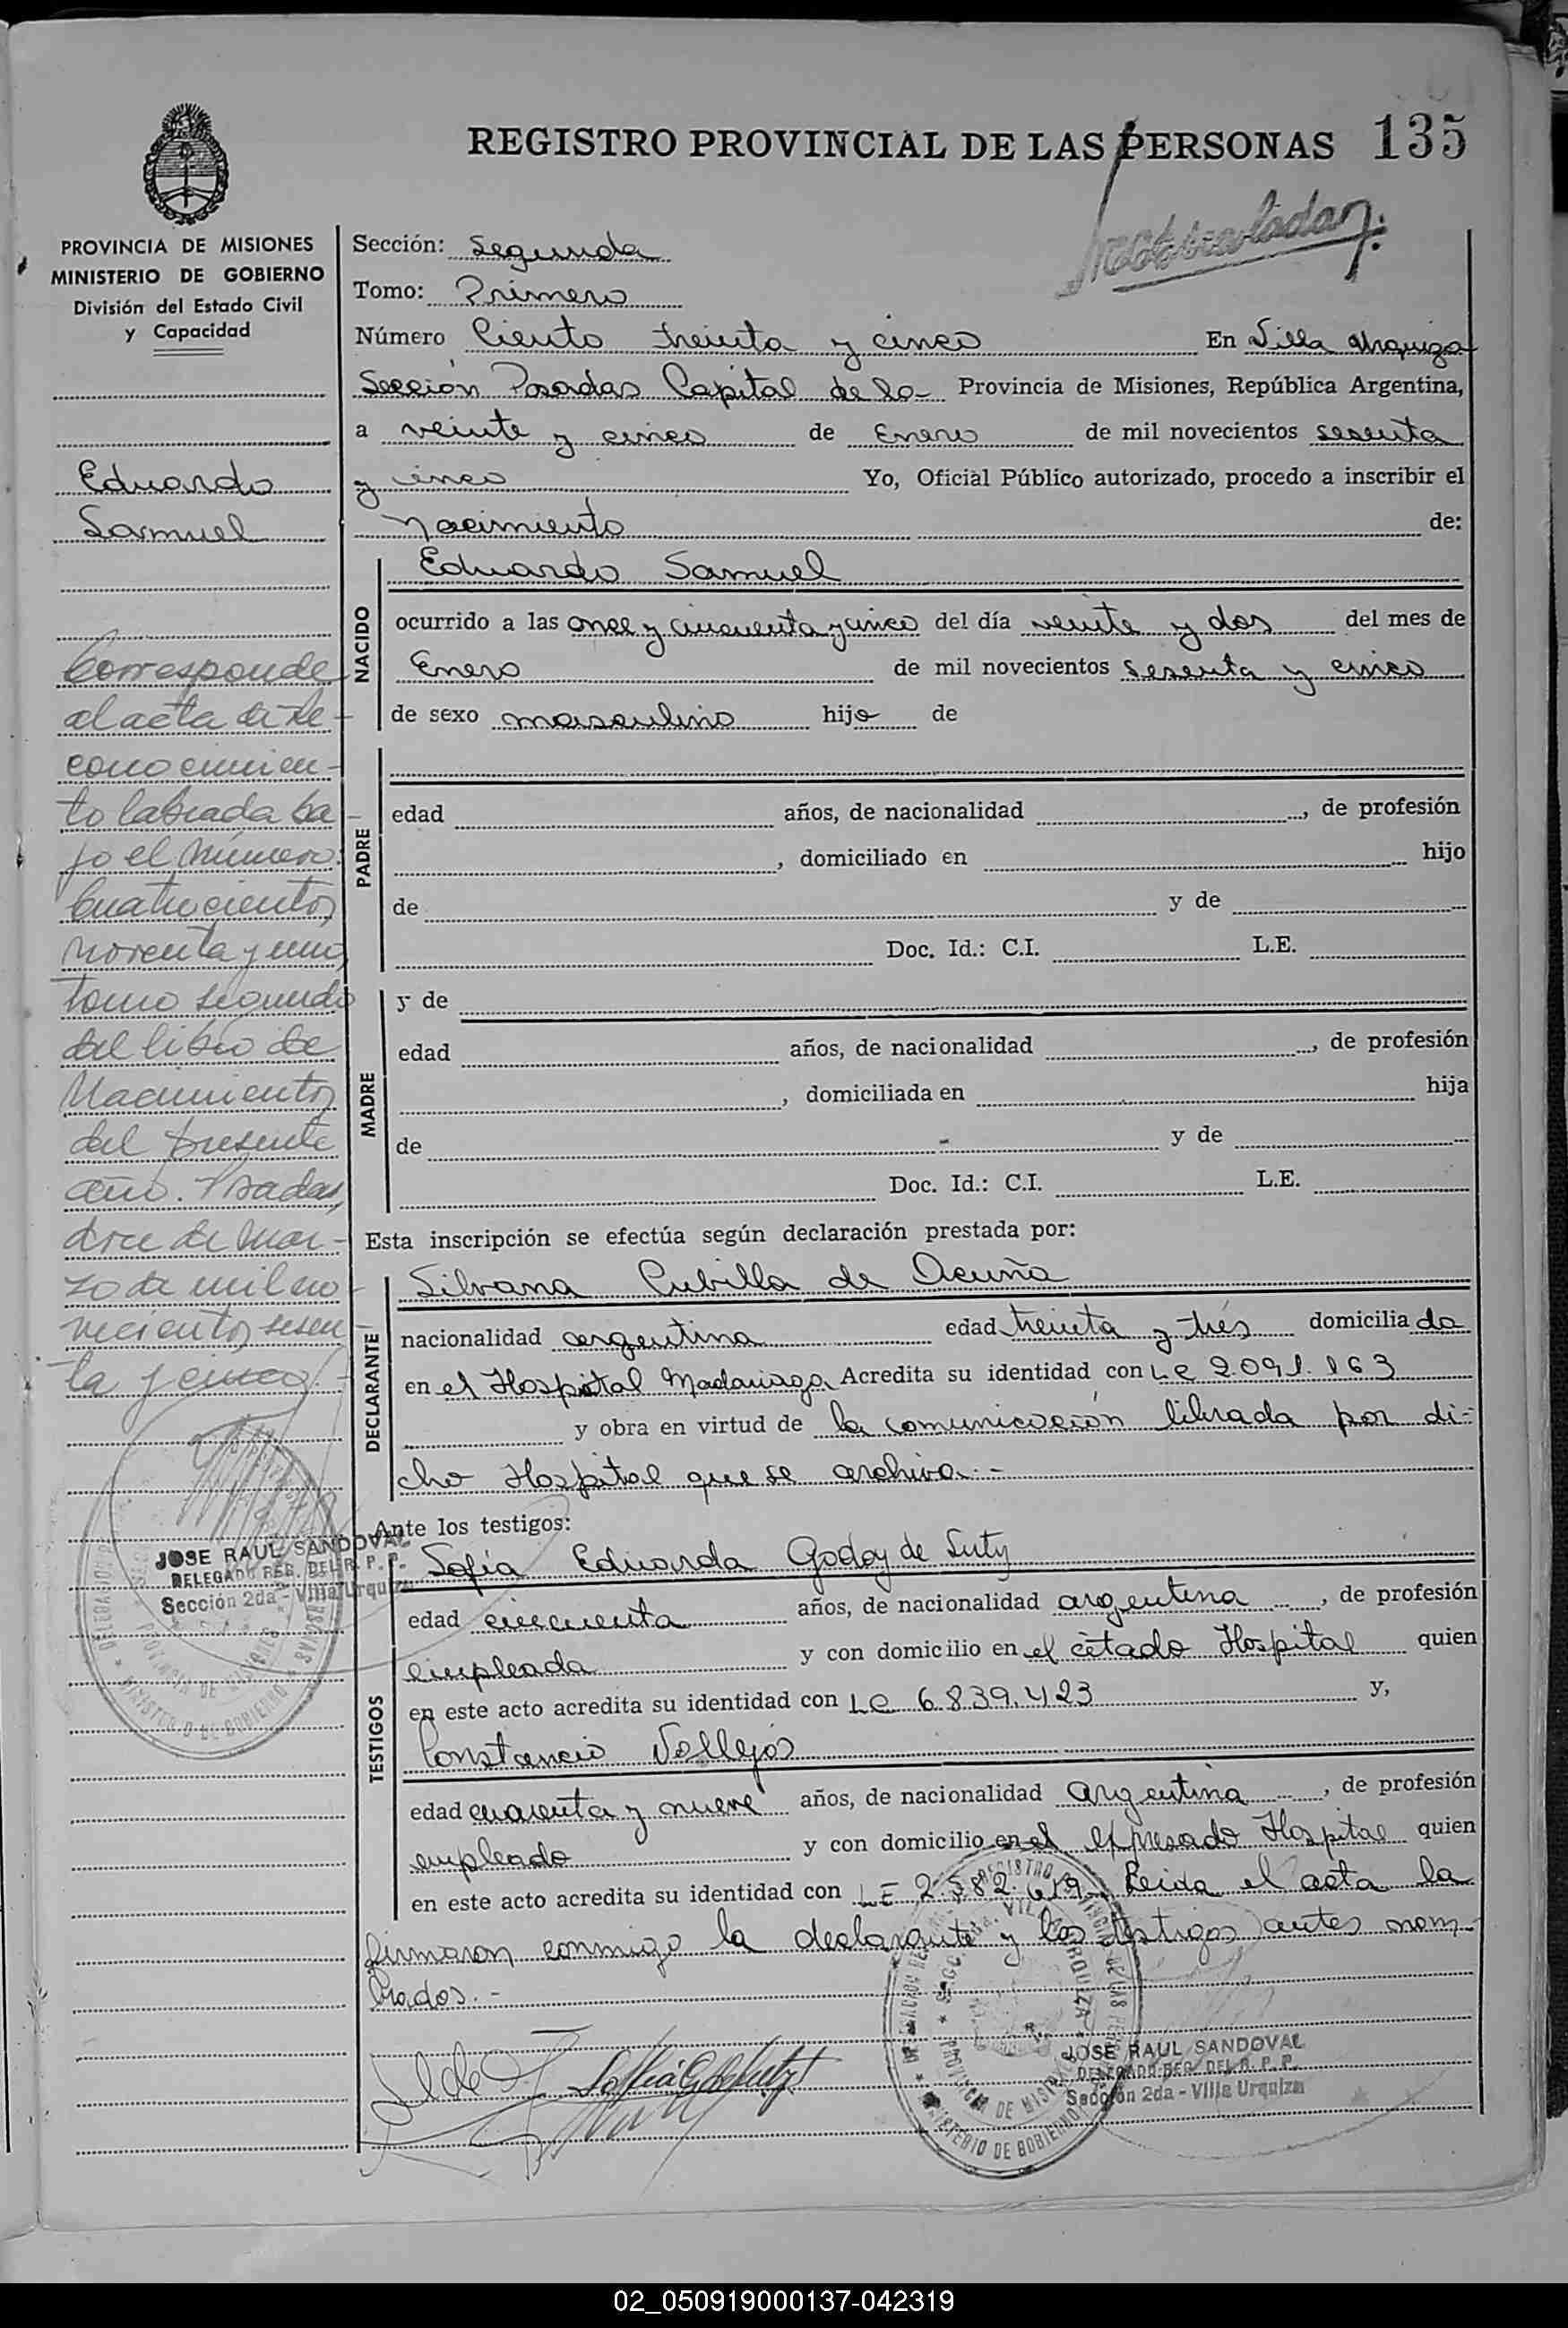 REGISTRO PROVINCIAL DE LAS PERSONAS 135
Matriculado
PROVINCIA DE MISIONES
MINISTERIO DE GOBIERNO
División del Estado Civil
y Capacidad
Eduardo
Samuel
Corresponde
al acta de Re-
conocimien-
to labrada ba-
jo el número:
Cuatrocientos
noventa y uno,
tomo segundo
del libro de
Nacimientos
del presente
año. Posadas,
doce de Mar-
zo de mil no-
vecientos sesen-
ta y cinco.-
JOSE RAUL SANDOVAL
DELEGADO REG. DEL R. P. P.
Sección 2da - Villa Urquiza
Sección: Segunda
Tomo: Primero
Número Ciento treinta y cinco En Villa Urquiza
Sección Posadas Capital de la- Provincia de Misiones, República Argentina,
a veinte y cinco de Enero de mil novecientos sesenta
y cinco Yo, Oficial Público autorizado, procedo a inscribir el
Nacimiento de:
NACIDO
Eduardo Samuel
ocurrido a las once y cincuenta y cinco del día veinte y dos del mes de
Enero de mil novecientos sesenta y cinco
de sexo masculino hijo de
PADRE
edad años, de nacionalidad , de profesión
, domiciliado en hijo
de y de
Doc. Id.: C.I. L.E.
MADRE
y de
edad años, de nacionalidad , de profesión
, domiciliada en hija
de y de
Doc. Id.: C.I. L.E.
Esta inscripción se efectúa según declaración prestada por:
DECLARANTE
Silvana Cubilla de Acuña
nacionalidad argentina edad treinta y trés domiciliada
en el Hospital Madariaga Acredita su identidad con Lc 2.091.163
y obra en virtud de la comunicación librada por di-
cho Hospital que se archiva.-
Ante los testigos:
TESTIGOS
Sofia Eduarda Godoy de Luty
edad cincuenta años, de nacionalidad argentina , de profesión
empleada y con domicilio en el citado Hospital quien
en este acto acredita su identidad con Lc 6.839.423 y,
Constancio Vallejos
edad cuarenta y nueve años, de nacionalidad argentina , de profesión
empleado y con domicilio en el expresado Hospital quien
en este acto acredita su identidad con LE 2.582.619 Leida el acta la
firmaron conmigo la declarante y los testigos antes nom-
brados.-
JOSE RAUL SANDOVAL
DELEGADO REG. DEL R. P. P.
Sección 2da - Villa Urquiza
02_050919000137-042319